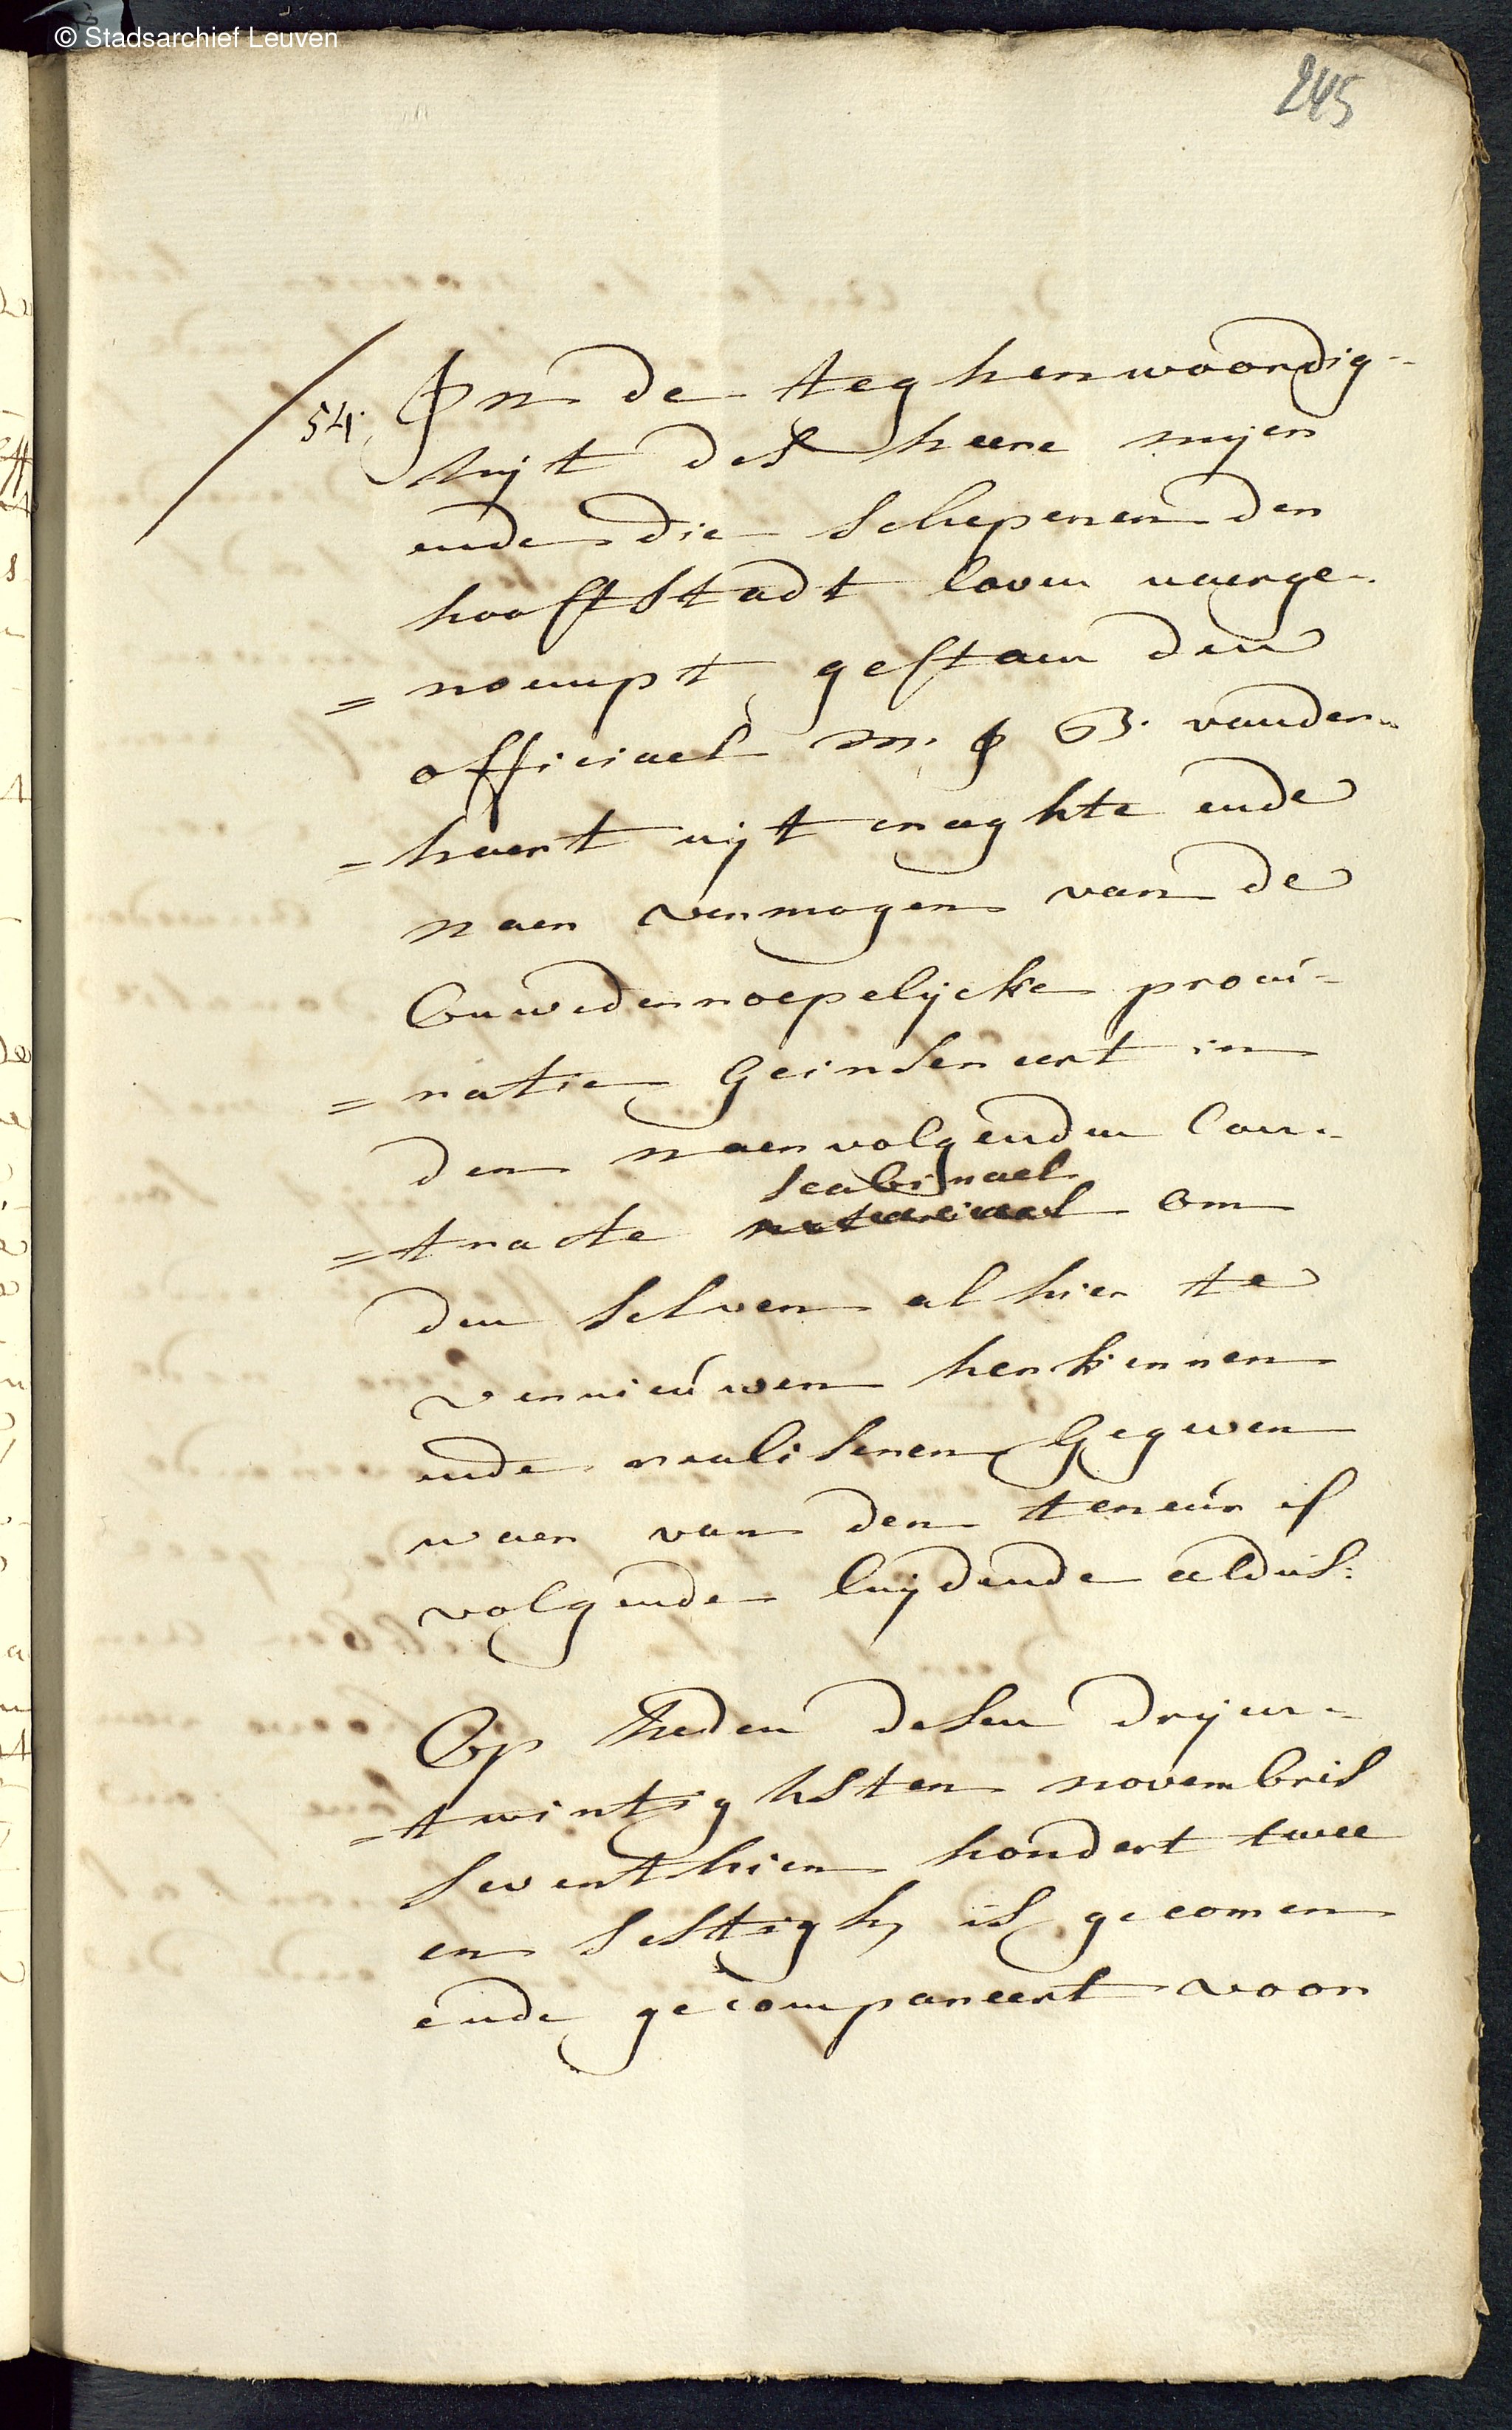 © Stadsarchief Leuven
245
54. In de teghenwoordig-
hijt des heere mijer
ende die schepenen der
hooftstadt loven naerge-
= noempt, gestaen den
officiael m. J B. vander-
= haert uijt craghte ende
naer vermogen van de
onwederroepelijcke procu-
= ratie geinsereert in
den naervolgenden con-
scabinael
= tracte notariael om
den selven alhier te
vernieúwen herkennen
ende realiseren gegeven
waer van den teneúr is
volgende luijdende aldus:
Op heden desen drijen-
= twintighsten novembris
seventhien hondert twee
en sestigh, is gecomen
ende gecompareert voor